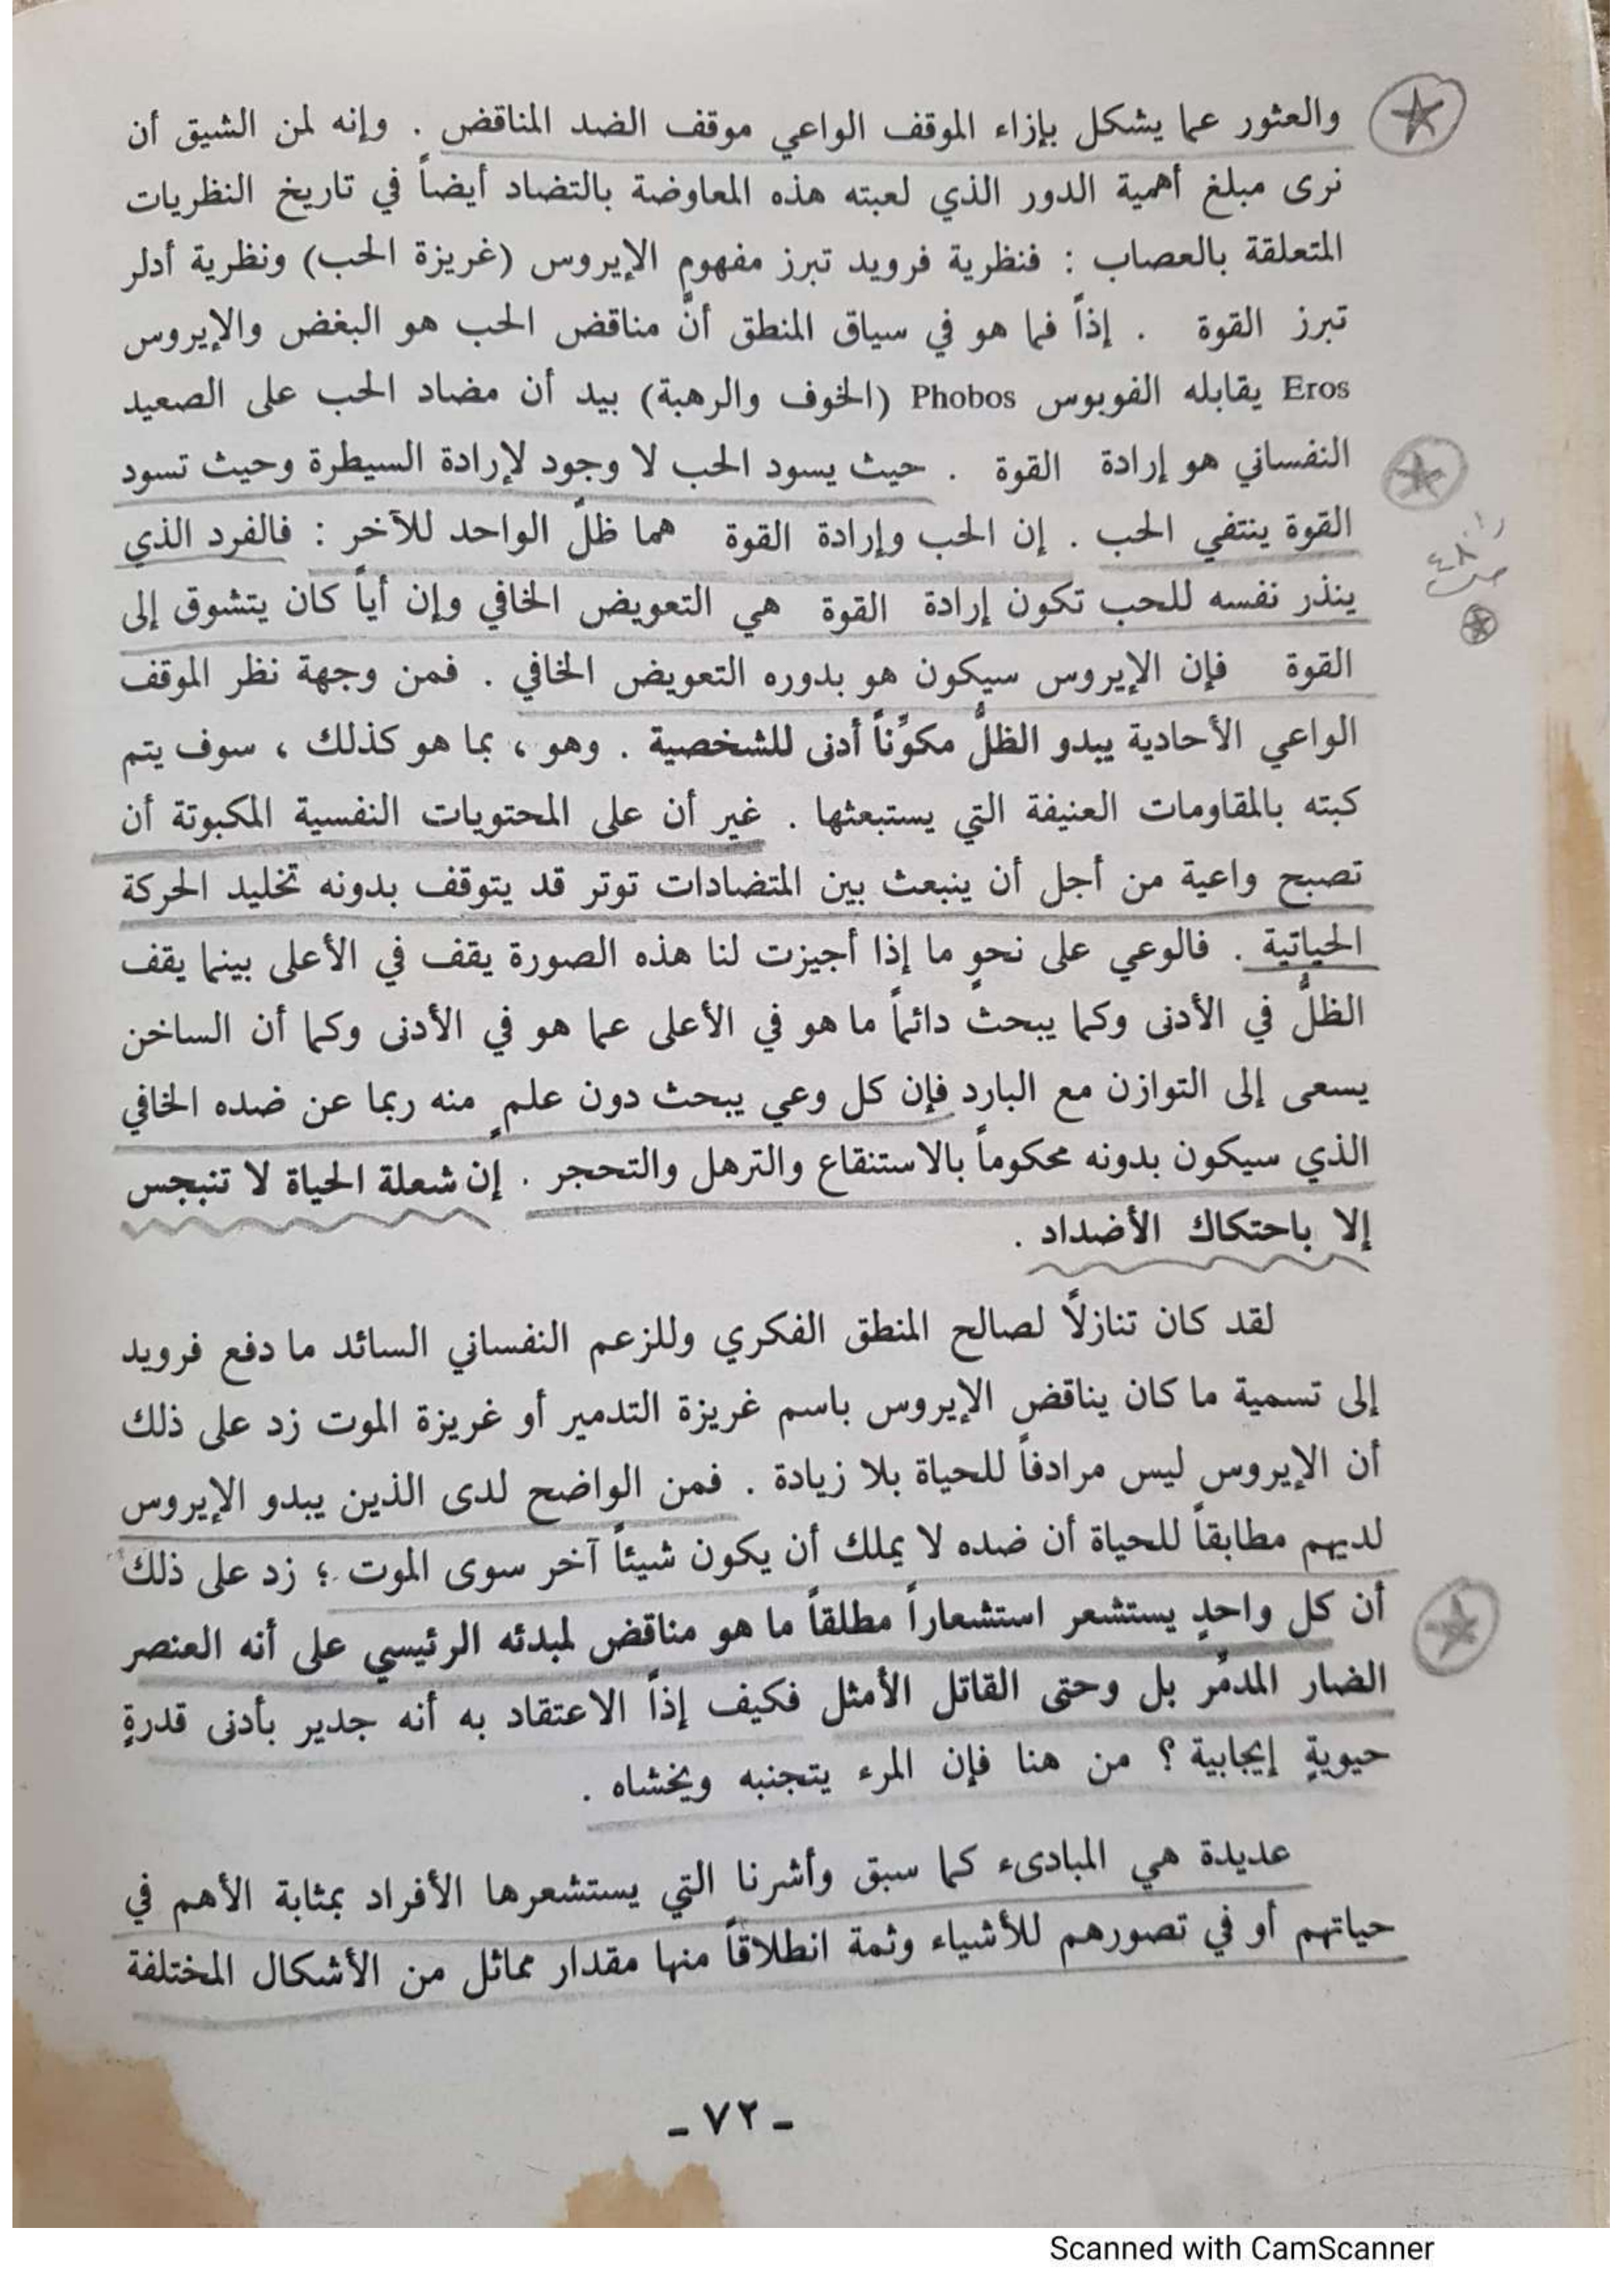 والعثور عما يشكل بإزاء الموقف الواعي موقف الضد المناقض . وإنه لمن الشيق أن
نرى مبلغ أهمية الدور الذي لعبته هذه المعاوضة بالتضاد أيضاً في تاريخ النظريات
المتعلقة بالعصاب : فنظرية فرويد تبرز مفهوم الإيروس (غريزة الحب) ونظرية أدلر
تبرز القوة . إذاً فما هو في سياق المنطق أنَّ مناقض الحب هو البغض والإيروس
Eros يقابله الفوبوس Phobos (الخوف والرهبة) بيد أن مضاد الحب على الصعيد
النفساني هو إرادة القوة . حيث يسود الحب لا وجود لإرادة السيطرة وحيث تسود
القوة ينتفي الحب . إن الحب وإرادة القوة هما ظلّ الواحد للآخر : فالفرد الذي
ينذر نفسه للحب تكون إرادة القوة هي التعويض الخافي وإن أياً كان يتشوق إلى
القوة فإن الإيروس سيكون هو بدوره التعويض الخافي . فمن وجهة نظر الموقف
الواعي الأحادية يبدو الظلُّ مكوِّناً أدنى للشخصية . وهو ، بما هو كذلك ، سوف يتم
كبته بالمقاومات العنيفة التي يستبعثها . غير أن على المحتويات النفسية المكبوتة أن
تصبح واعية من أجل أن ينبعث بين المتضادات توتر قد يتوقف بدونه تخليد الحركة
الحياتية . فالوعي على نحوٍ ما إذا أجيزت لنا هذه الصورة يقف في الأعلى بينما يقف
الظلُّ في الأدنى وكما يبحث دائماً ما هو في الأعلى عما هو في الأدنى وكما أن الساخن
يسعى إلى التوازن مع البارد فإن كل وعي يبحث دون علمٍ منه ربما عن ضده الخافي
الذي سيكون بدونه محكوماً بالاستنقاع والترهل والتحجر . إن شعلة الحياة لا تنبجس
إلا باحتكاك الأضداد .
لقد كان تنازلاً لصالح المنطق الفكري وللزعم النفساني السائد ما دفع فرويد
إلى تسمية ما كان يناقض الإيروس باسم غريزة التدمير أو غريزة الموت زد على ذلك
أن الإيروس ليس مرادفاً للحياة بلا زيادة . فمن الواضح لدى الذين يبدو الإيروس
لديهم مطابقاً للحياة أن ضده لا يملك أن يكون شيئاً آخر سوى الموت ؛ زد على ذلك
أن كل واحدٍ يستشعر استشعاراً مطلقاً ما هو مناقض لمبدئه الرئيسي على أنه العنصر
الضار المدمِّر بل وحتى القاتل الأمثل فكيف إذاً الاعتقاد به أنه جدير بأدنى قدرةٍ
حيويةٍ إيجابية ؟ من هنا فإن المرء يتجنبه ويخشاه .
عديدة هي المبادىء كما سبق وأشرنا التي يستشعرها الأفراد بمثابة الأهم في
حياتهم أو في تصورهم للأشياء وثمة انطلاقاً منها مقدار مماثل من الأشكال المختلفة
ـ ٧٢ ـ
Scanned with CamScanner